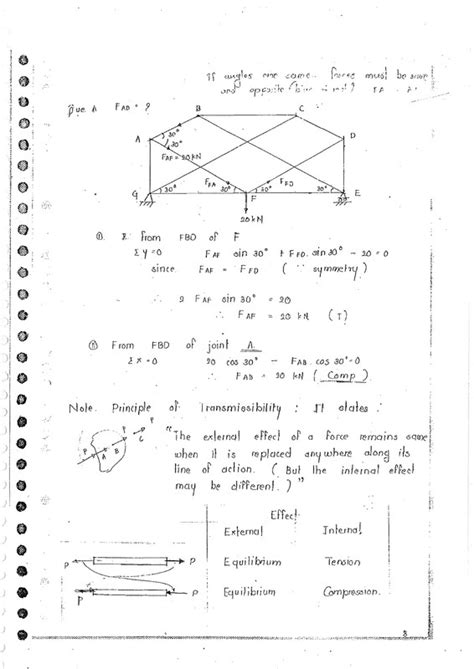 If angles are same force must be same
and opposite
Que. A FAB = ?
B C
A 30° 30° D
FAF = 20 KN
FFA FFD
G 30° 30° F 30° 30° E
20 KN
①. From FBD of F
Σ Y = 0 FAF sin 30° + FFD. sin 30° - 20 = 0
since FAF = FFD (∵ symmetry)
∴ 2 FAF sin 30° = 20
∴ FAF = 20 KN (T)
② From FBD of joint A.
Σ X = 0 20 cos 30° - FAB cos 30° = 0
∴ FAB = 20 KN (Comp)
Note. Principle of Transmissibility : It states :
P A B P C P
"The external effect of a force remains same
when it is replaced anywhere along its
line of action. (But the internal effect
may be different.)"
Effect
External Internal
P P Equilibrium Tension
P P Equilibrium Compression.
3